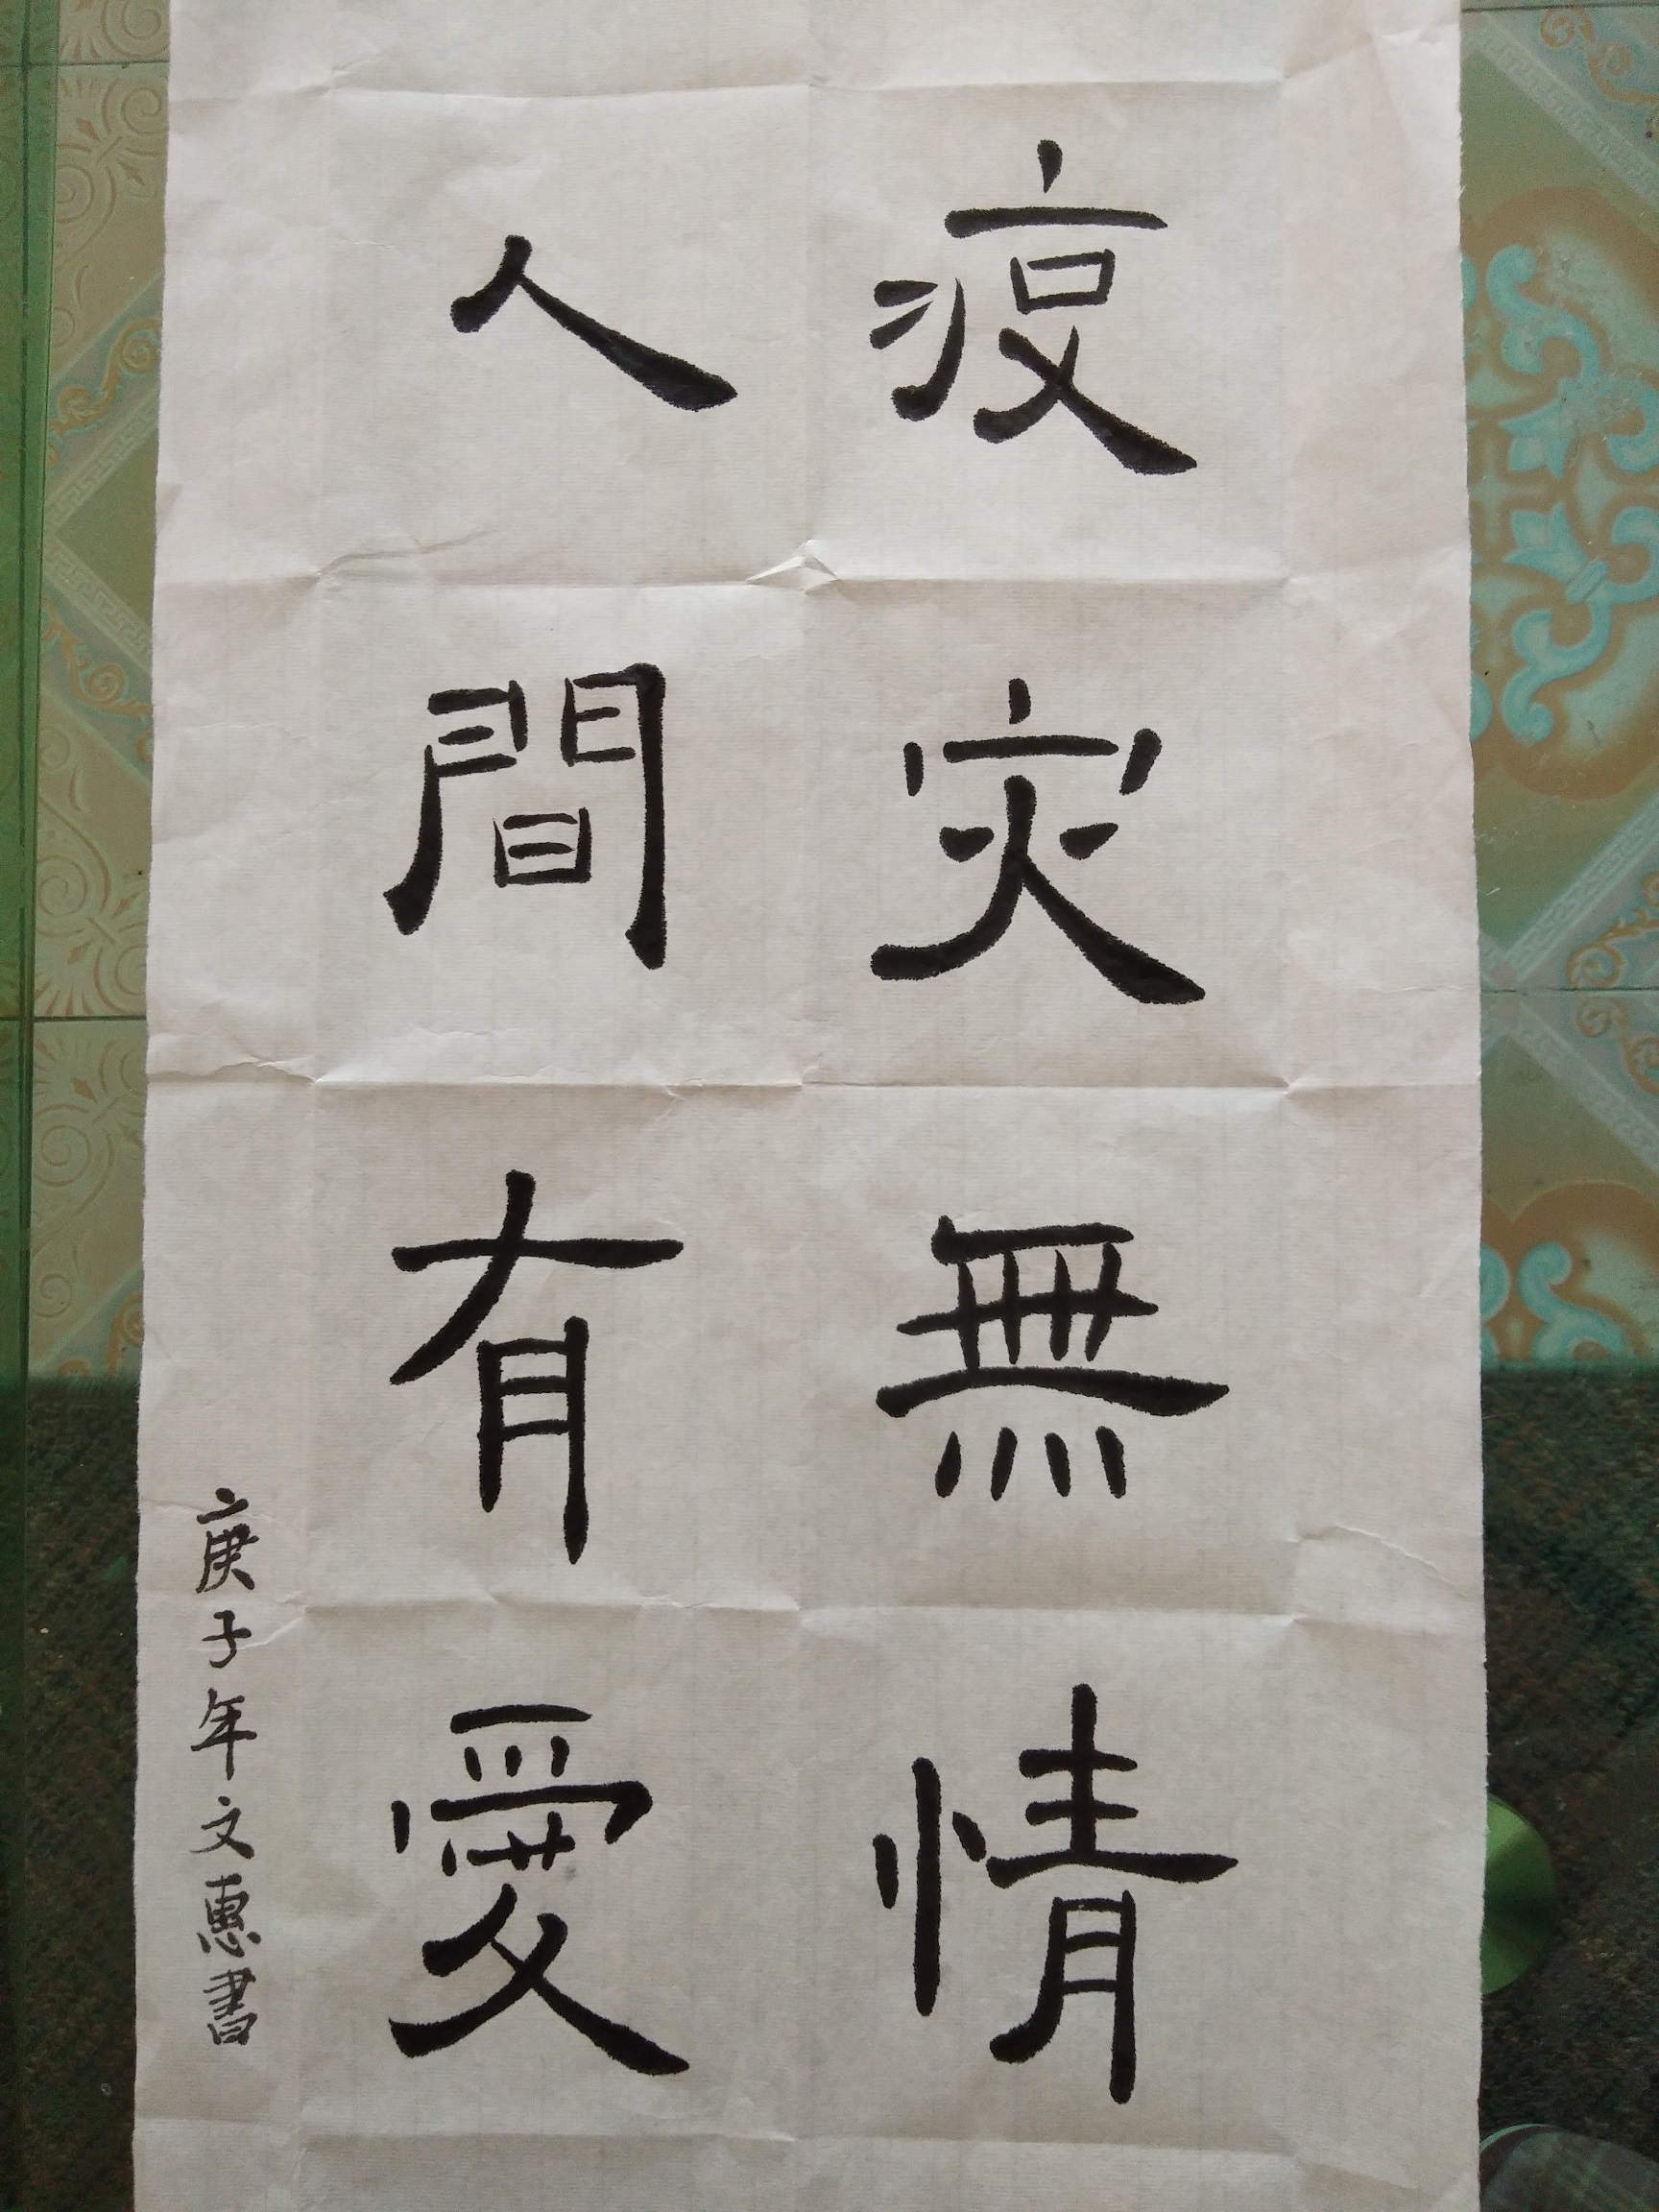 疫灾無情
人間有愛
庚子年文惠書